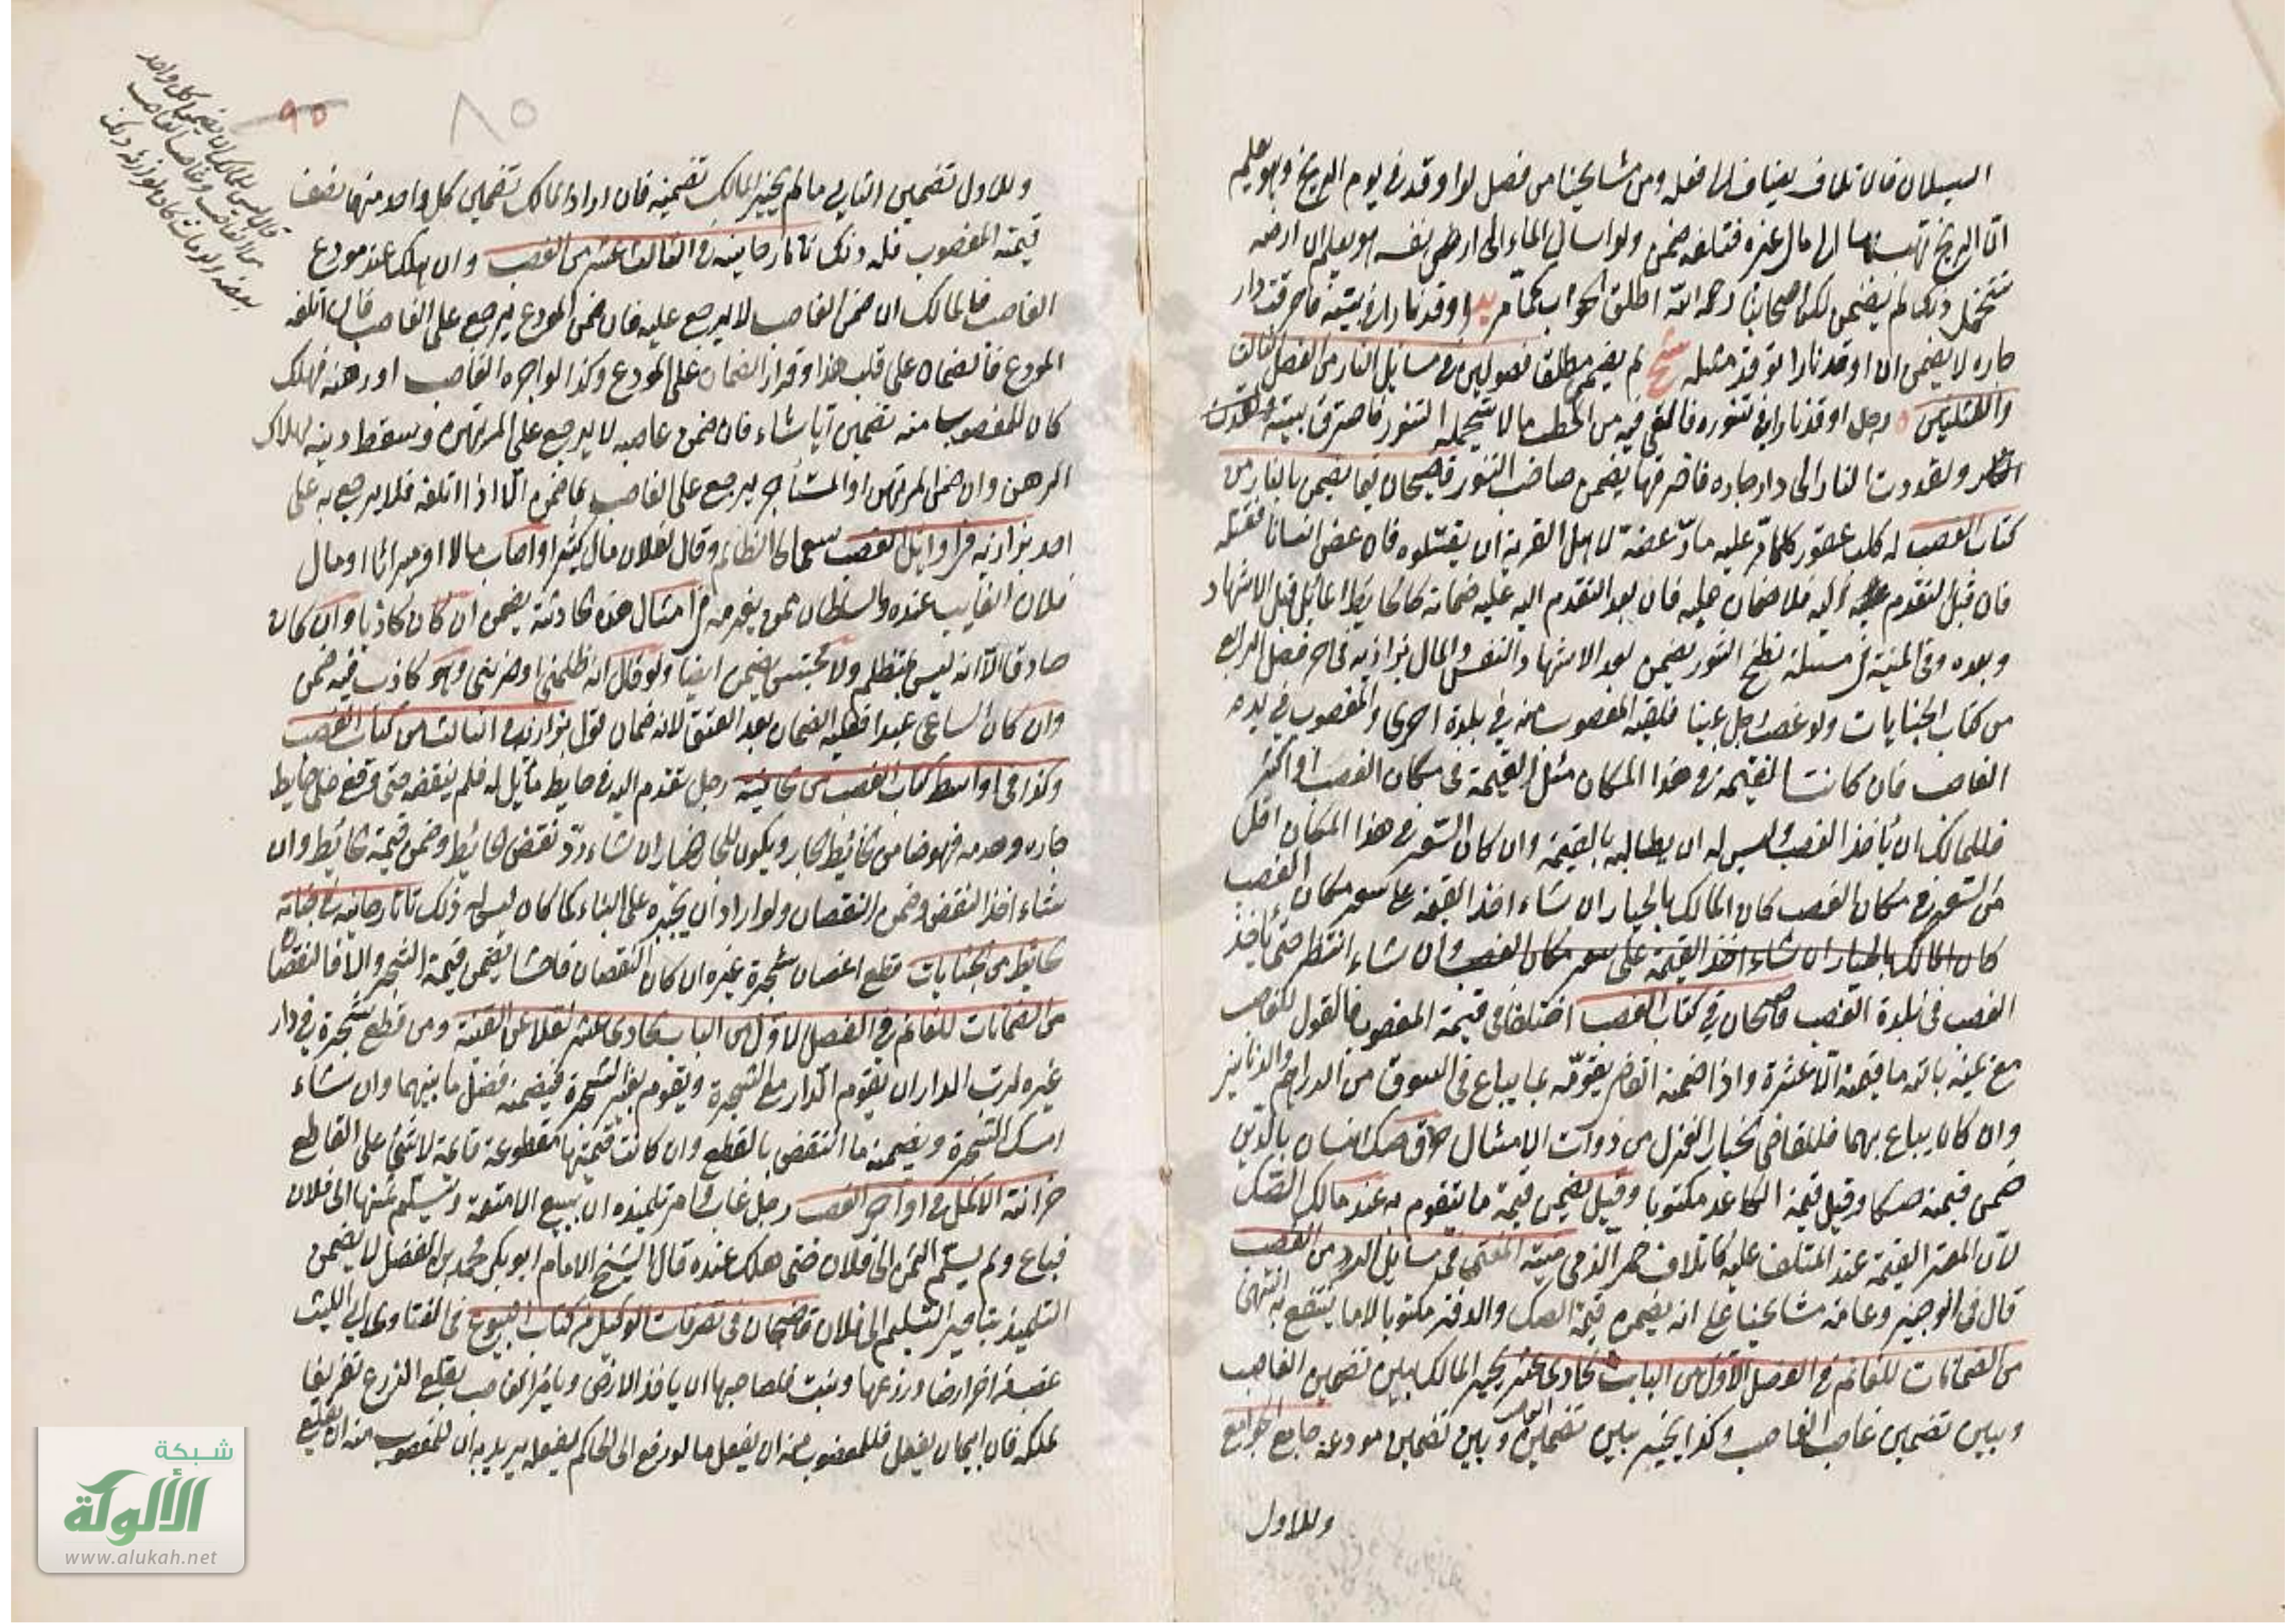 السيلان فالتلاف يضاف الى فعله ومن مشايخنا من فصل لو اوقد في يوم الريح وهو يعلم
ان الريح تذهب بها الى مال غيره فتلفه ضمن ولو اسال الماء الى ارض نفسه هو يعلم ان ارضه
تتحمل ذلك لم يضمن لكن اصحابنا رحمهم الله اطلق الجواب كما مر اوقد نارا في بيته فاحرقت دار
جاره لا يضمن ان اوقد نارا توقد مثله لم يضمن مطلقا فصولين في مسائل النار من الفصل الثالث
والثلثين رجل اوقد نارا في تنوره فالقى فيه من الحطب ما لا يتحمله التنور فاحترق بيته وتعدت
ولقد ودت النار الى دار جاره فاحرقتها يضمن صاحب التنور قاضيخان فيما يضمن بالنار من
كتاب الغصب له كلب عقور كلما مر عليه مار عضه لاهل القرية ان يقتلوه فان عض انسانا فقتله
فان قبل التقدم اليه فلا ضمان عليه فان بعد التقدم اليه عليه ضمانه كالحايط المائل قبل الاشهاد
وبعده وفي المنية في مسئلة نطح الثور يضمن بعد الاشهاد النفس والمال بزازيه في اخر فصل الرابع
من كتاب الجنايات ولو غصب رجل عينا فلقيه المغصوب منه في بلدة اخرى والمغصوب في يده
الغاصب فان كانت القيمة في هذا المكان مثل القيمة في مكان الغصب او اكثر
فللمالك ان ياخذ الغصب وليس له ان يطالبه بالقيمة وان كان السعر في هذا المكان اقل
من السعر في مكان الغصب كان المالك بالخيار ان شاء اخذ القيمة على سعر مكان الغصب
كان المالك بالخيار ان شاء اخذ القيمة على سعر مكان الغصب وان شاء انتظر حتى ياخذ
الغصب في بلدة الغصب قاضيخان في كتاب الغصب اختلفا في قيمة المغصوب فالقول للغاصب
مع يمينه بالله ما قيمته الا عشرة واذا ضمنه القاضي يقومه بما يباع في السوق من الدراهم والدنانير
وان كان يباع بهما فللقاضي الخيار الغزل من ذوات الامثال حرق صك انسان بالدين
ضمن قيمته صكا وقيل قيمة الكاغد مكتوبا وقيل يضمن قيمة ما يتقوم به عند مالك الصك
لان المعتبر القيمة عند المتلف عليه كاتلاف خمر الذمي منية المفتي في مسائل الدور من الغصب
قال في الوجيز وعامة مشايخنا على انه يضمن قيمة الصك والدفتر مكتوبا لا ما ينتفع به انتهى
من الضمانات للغانم في الفصل الاول من الباب الحادي عشر يخير المالك بين تضمين الغاصب
وبين تضمين غاصب الغاصب وكذا يخير بين تضمين الغاصب وبين تضمين مودعه جامع الجوامع
وللاول
٩٥
٨٥
وللاول تضمين الثاني ما لم يخير المالك تضمينه فان اراد المالك تضمين كل واحد منهما نصف
قيمة المغصوب فله ذلك تاتارخانيه في الثالث عشر من الغصب وان هلك عند مودع
الغاصب فالمالك ان ضمن الغاصب لا يرجع عليه فان ضمن المودع يرجع على الغاصب فان اتلفه
المودع فالضمان على قلب هذا وقرار الضمان على المودع وكذا لو اجره الغاصب او رهنه فهلك
كان للمغصوب منه تضمين ايا شاء فان ضمن غاصبه لا يرجع على المرتهن وسقط دينه لهلاك
الرهن وان ضمن المرتهن او المستأجر يرجع على الغاصب بما ضمن الا اذا اتلفه فلا يرجع به على
احد بزازيه في اوائل الغصب سعى الى الظالم وقال لفلان مال كثير او اصاب مالا او ميراثا او مال
فلان الغايب عنده والسلطان ممن يغرمه في امثال هذه الحادثة يضمن ان كان كاذبا وان كان
صادقا الا انه ليس بمتظلم ولا محتسب ضمن ايضا ولو قال انه ظلمني او ضربني وهو كاذب فيه ضمن
وان كان الساعي عبدا فعليه الضمان بعد العتق لانه ضمان قول بزازيه في الثالث من كتاب الغصب
وكذا في اواسط كتاب الغصب من الخانية رجل تقدم اليه في حايط مائل له فلم ينقضه حتى وقع على حايط
جاره وهدمه فهو ضامن لحائط الجار ويكون للجار الخيار ان شاء رد نقض الحائط وضمن قيمة الحائط وان
شاء اخذ النقض وضمن النقصان ولو اراد ان يجبره على البناء كما كان ليس له ذلك تاتارخانيه في جناية
الحائط من الجنايات قطع اغصان شجرة غيره ان كان النقصان فاحشا يضمن قيمة الشجر والا فالنقصان
من الضمانات للغانم في الفصل الاول من الباب الحادي عشر نقلا عن القنية ومن قطع شجرة في دار
غيره لرب الدار ان يقوم الدار مع الشجرة ويقوم بغير الشجرة فيضمنه فضل ما بينهما وان شاء
امسك الشجرة ويضمنه ما انتقض بالقطع وان كانت قيمتها مقطوعة قائمة لا شئ على القاطع
خزانة الاكمل في اواخر الغصب رجل غاب وامر تلميذه ان يبيع الامتعة ويسلم ثمنها الى فلان
فباع ولم يسلم الثمن الى فلان حتى هلك عنده قال الشيخ الامام ابو بكر محمد بن الفضل لا يضمن
التلميذ بتاخير التسليم الى فلان قاضيخان في تصرفات الوكيل من كتاب البيوع في الفتاوى ابي الليث
غصب من اخر ارضا وزرعها ونبت فلصاحبها ان ياخذ الارض ويامر الغاصب بقلع الزرع تفريغا
لملكه فان ابى ان يفعل فللمغصوب منه ان يفعل ما لو رفع الى الحاكم يفعله يريد به ان للمغصوب منه ان يقلع
شبكة
الألوكة
www.alukah.net